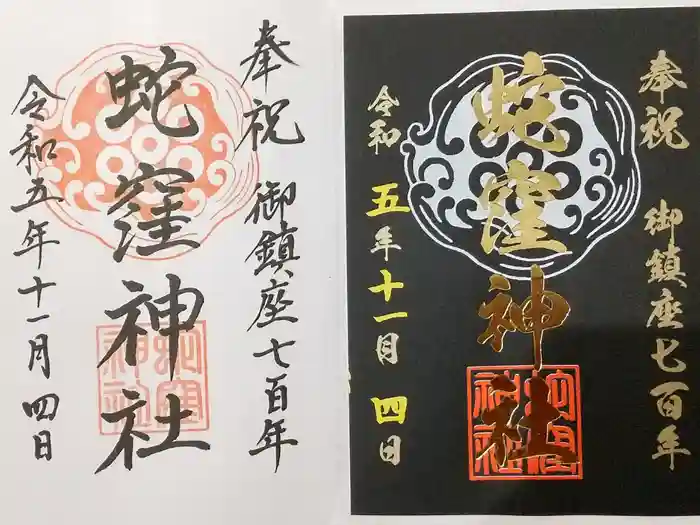 奉祝 御鎮座七百年
蛇窪神社
蛇窪神社
令和五年十一月四日
奉祝 御鎮座七百年
蛇窪神社
蛇窪神社
令和五年十一月四日